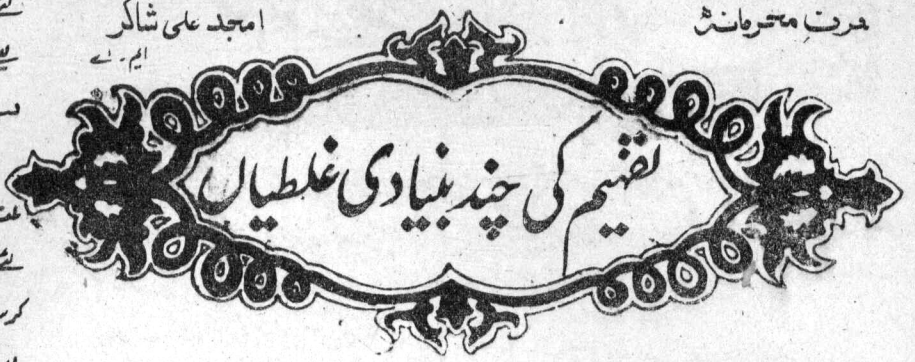 حرفِ محرمانہ
امجد علی شاکر
ایم۔اے
تفہیم کی چند بنیادی غلطیاں